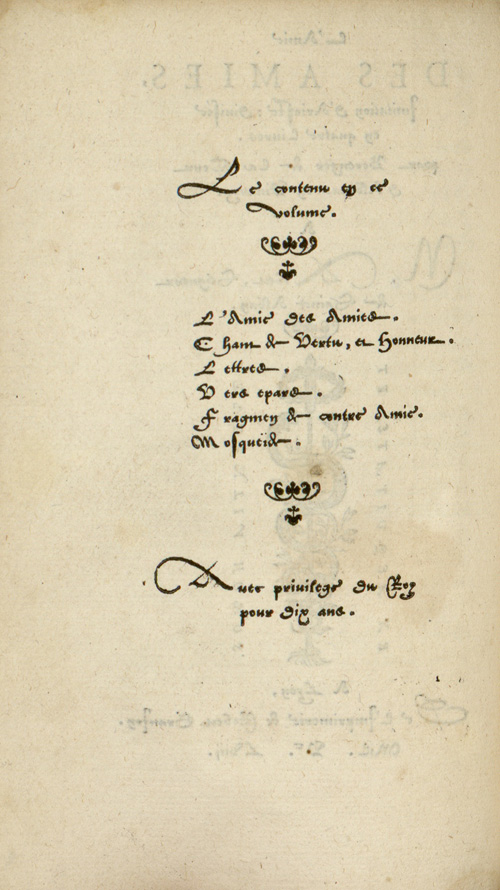 Le contenu en ce
volume.
L'Amie des Amies.
Chant de Vertu, et Honneur.
Lettres.
Vers epars.
Fragment de contre Amie.
Mosqueide.
Avec privilege du Roy
pour dix ans.